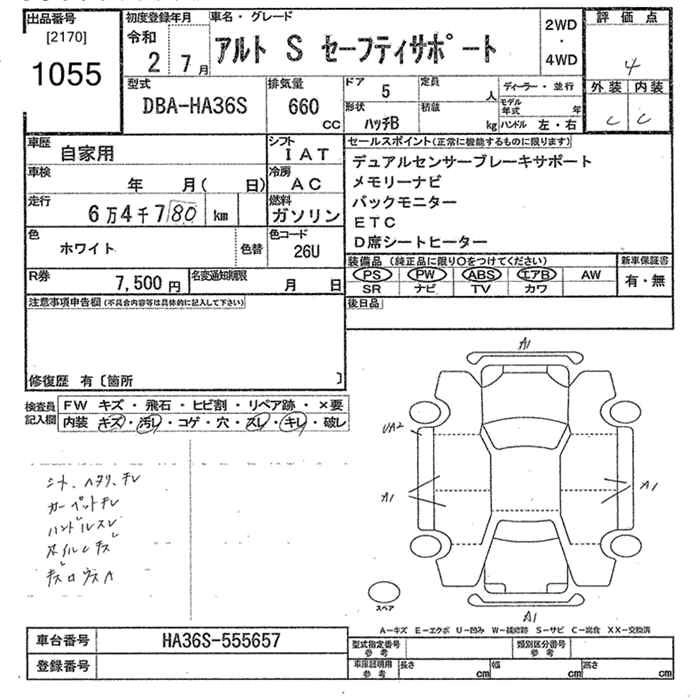 出品番号
[2170]
1055
初度登録年月
令和
2 7月
車名・グレード
アルト S セーフティサポート
2WD
・
4WD
評価点
4
外装 内装
C C
型式
DBA-HA36S
排気量
660
CC
ドア
5
定員
人
形状
ハッチB
積載
kg
ディーラー・並行
モデル年式 年
ハンドル 左・右
車歴
自家用
シフト
IAT
車検
年 月( 日)
冷房
AC
走行
6万4千780 km
燃料
ガソリン
色
ホワイト
色替
色コード
26U
R券
7,500円
名変通知期限
月 日
セールスポイント(正常に機能するものに限ります)
デュアルセンサーブレーキサポート
メモリーナビ
バックモニター
ETC
D席シートヒーター
装備品(純正品に限り○をつけてください)
PS PW ABS エアB AW
SR ナビ TV カワ
新車保証書
有・無
後日品
注意事項申告欄(不具合内容等は具体的に記入して下さい)
修復歴 有〔箇所 〕
検査員記入欄
FW キズ・飛石・ヒビ割・リペア跡・×要
内装 キズ・汚レ・コゲ・穴・スレ・キレ・破レ
シート、ヘタリ、キレ
カーペットキレ
ハンドルスレ
A1
UA2
A1
A1
A1
スペア
A-キズ E-エクボ U-凹み W-補修跡 S-サビ C-腐食 XX-交換済
車台番号
HA36S-555657
登録番号
型式指定番号参考
類別区分番号参考
車庫証明用参考
長さ cm
幅 cm
高さ cm